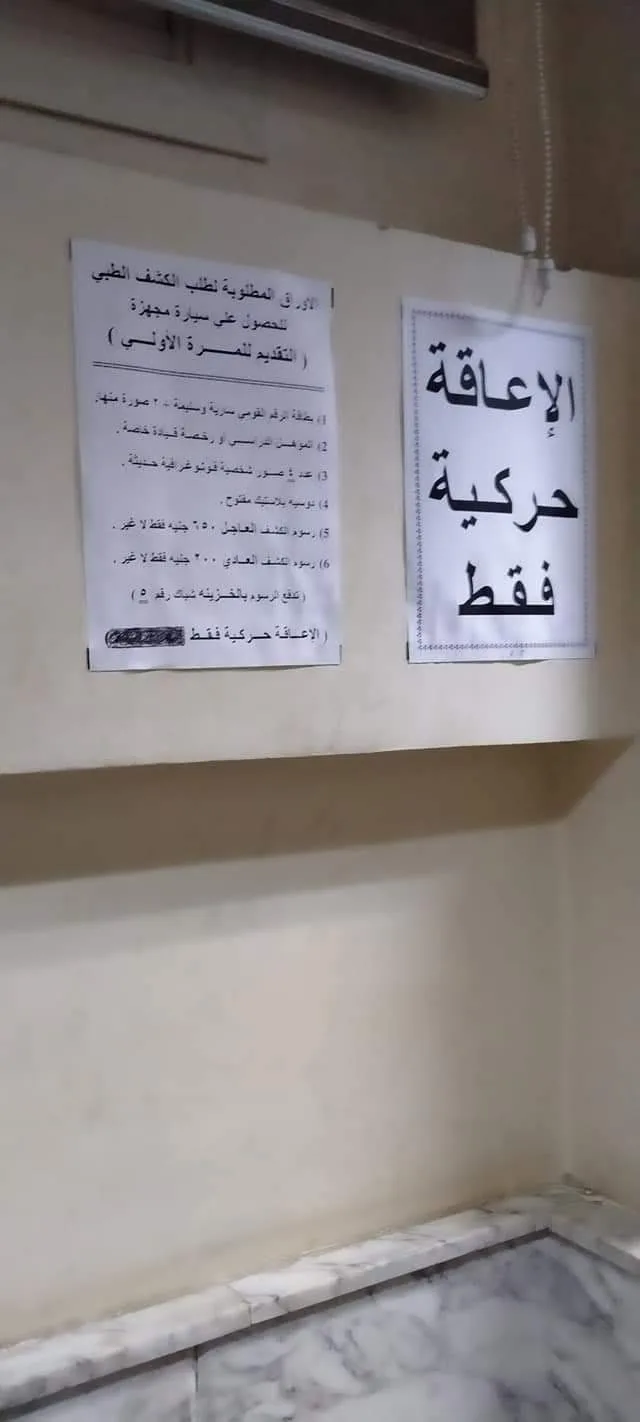 الاوراق المطلوبة لطلب الكشف الطبي
للحصول علي سيارة مجهزة
( التقديم للمـــرة الأولـــي )
1) بطاقة الرقم القومي سارية وسليمة + ٢ صورة منها.
2) المؤهل الدراســـي أو رخصة قيادة خاصة .
3) عدد ٤ صور شخصية فوتوغرافية حديثة .
4) دوسيه بلاستيك مفتوح .
5) رسوم الكشف العاجل ٦٥٠ جنيه فقط لا غير .
6) رسوم الكشف العادي ٢٠٠ جنيه فقط لا غير .
( تدفع الرسوم بالخزينه شباك رقم ٥ )
( الاعاقة حركية فقط
الإعاقة
حركية
فقط